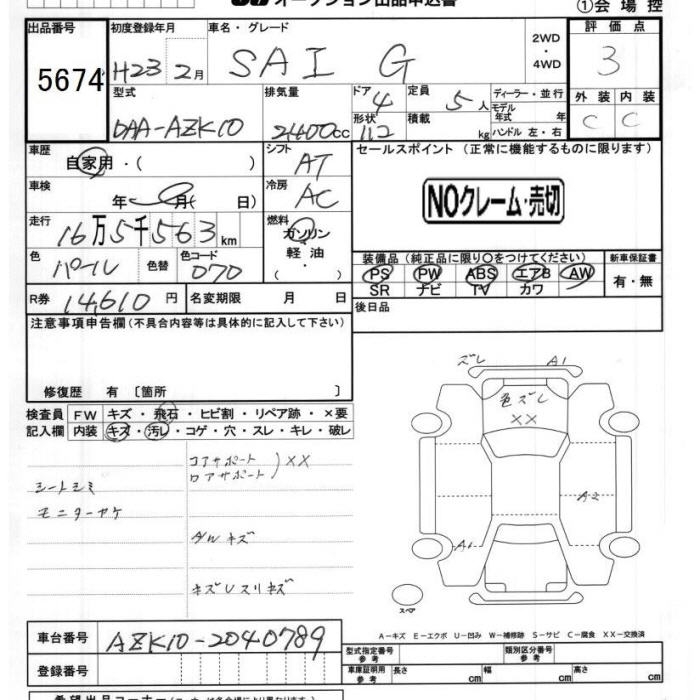 オークション出品申込書
①会場控
出品番号 初度登録年月 車名・グレード 評価点
5674 H23 2月 SAI G 2WD ・ 4WD 3
型式 排気量 ドア 4 定員 5人 ディーラー・並行 外装 内装
DAA-AZK10 2400cc 形状 112 積載 kg モデル年式 年 C C
ハンドル 左・右
車歴 自家用・( ) シフト AT セールスポイント（正常に機能するものに限ります）
車検 年 月( 日) 冷房 AC NOクレーム・売切
走行 16万5千563km 燃料 ガソリン 軽油 ・( )
色 パール 色替 色コード 070
装備品（純正品に限り〇をつけてください） 新車保証書
PS PW ABS エアB AW 有・無
SR ナビ TV カワ
R券 14,610円 名変期限 月 日 後日品
注意事項申告欄（不具合内容等は具体的に記入して下さい）
修復歴 有 〔箇所 〕
検査員 FW キズ・飛石・ヒビ割・リペア跡・×要
記入欄 内装 キズ・汚レ・コゲ・穴・スレ・キレ・破レ
コアサポート
ロアサポート XX
シートシミ
モニターヤケ
ダルキズ
キズレスリキズ
ズレ A1
色ズレ
XX
A2
A1
スペア
A－キズ E－エクボ U－凹み W－補修跡 S－サビ C－腐食 XX－交換済
車台番号 AZK10-2040789
登録番号
型式指定番号 参考 類別区分番号 参考
車庫証明用 参考 長さ cm 幅 cm 高さ cm